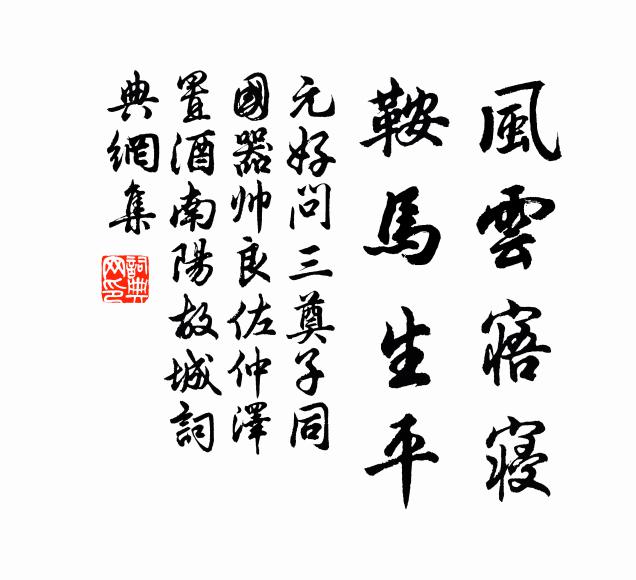 風雲寤寢
鞍馬生平
元好問三奠子同
國器帅良佐仲澤
置酒南陽故城詞
典網集
詞典
网印